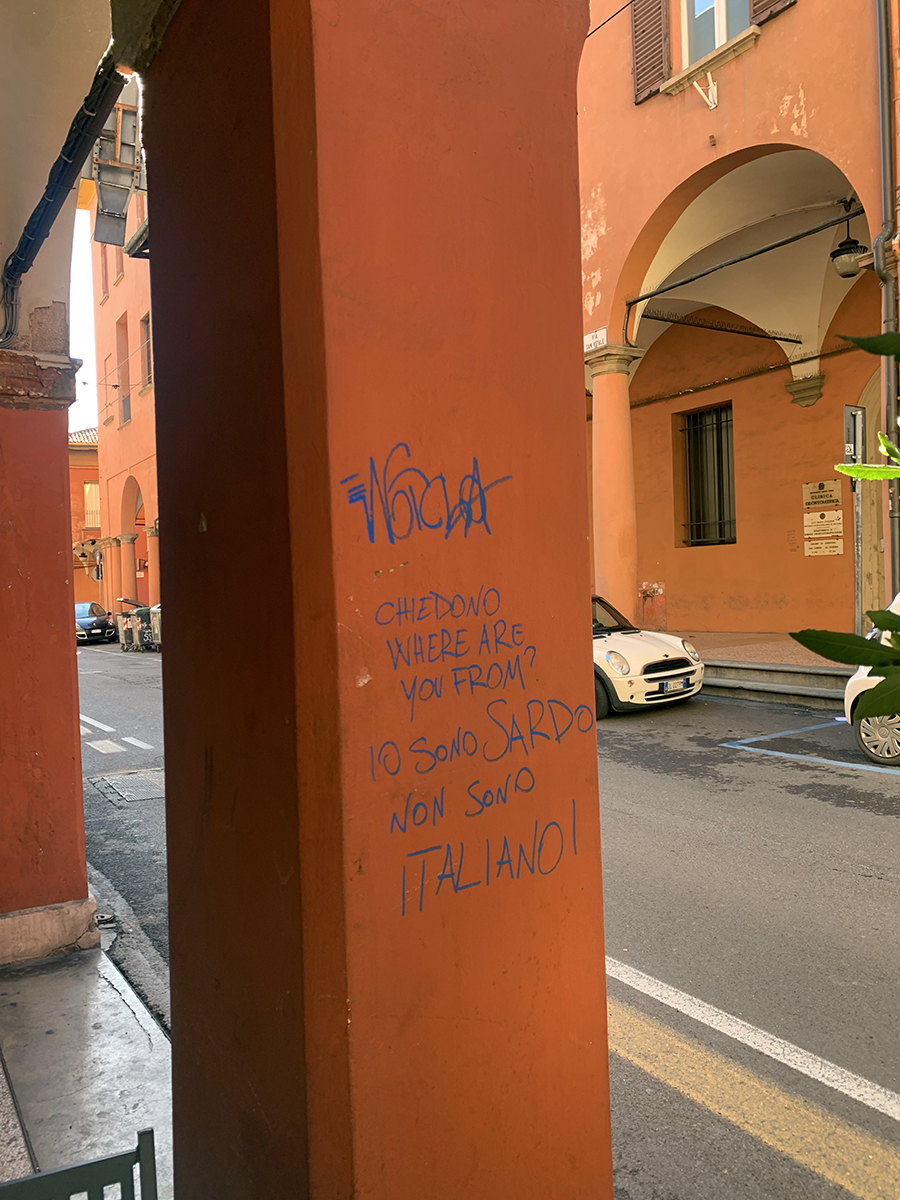 CHIEDONO
WHERE ARE
YOU FROM?
IO SONO SARDO
NON SONO
ITALIANO!
VIA
SAN VITALE
CLINICA
ODONTOIATRICA